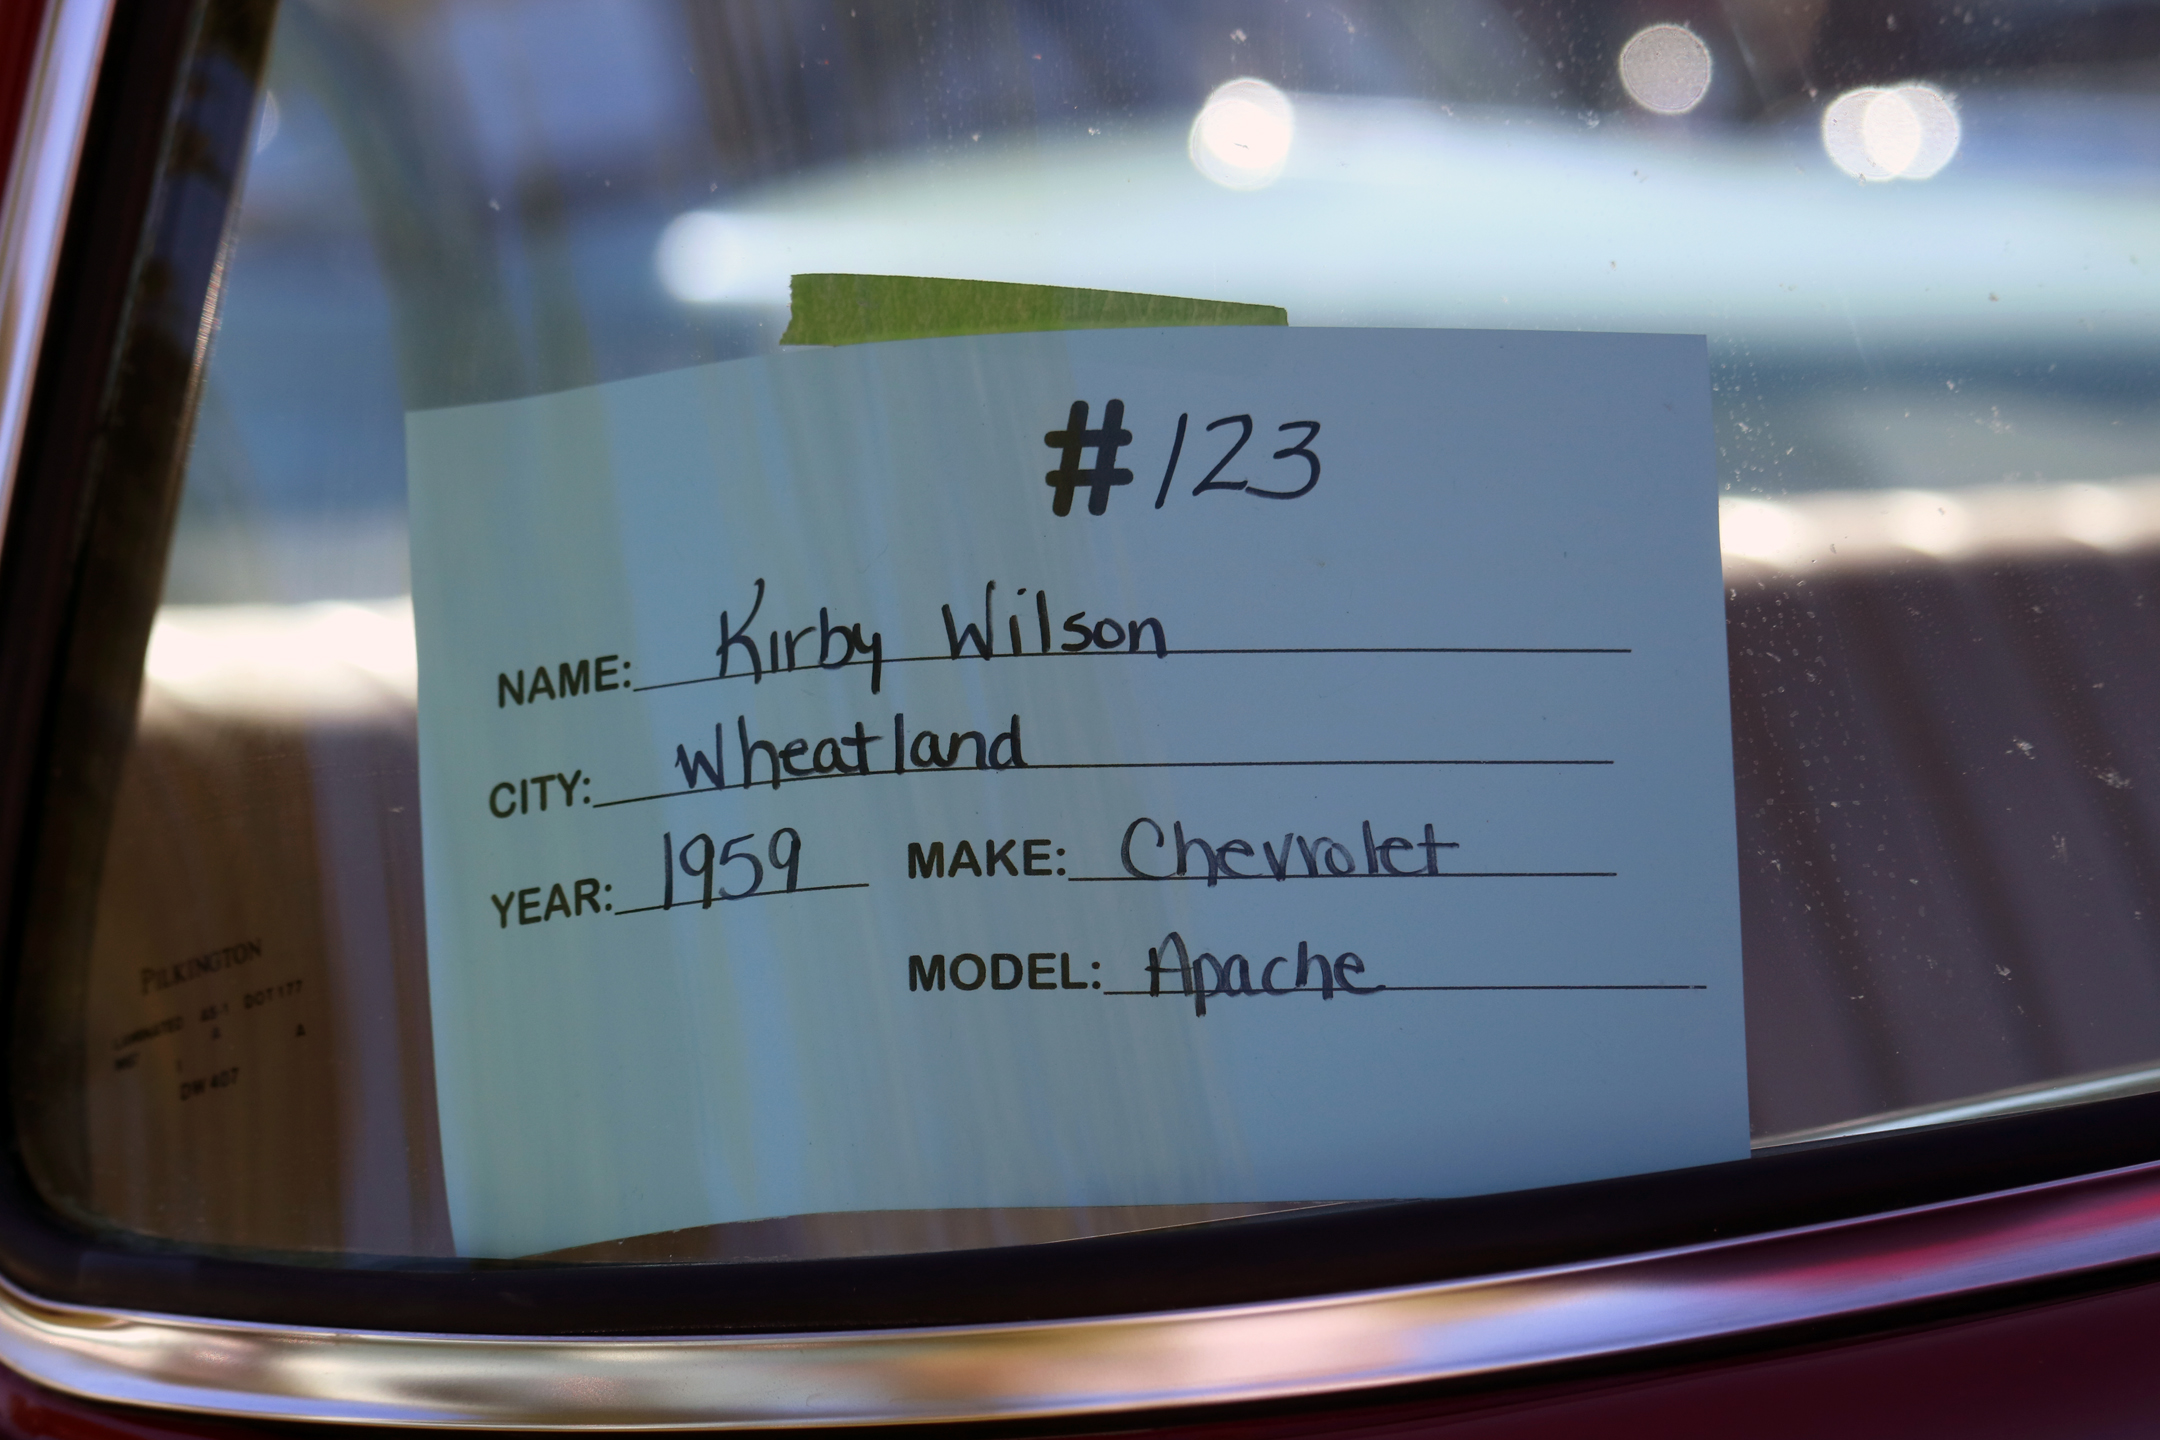 #123
NAME: Kirby Wilson
CITY: Wheatland
YEAR: 1959 MAKE: Chevrolet
MODEL: Apache
PILKINGTON
LAMINATED AS-1 DOT177
A A
DW 407